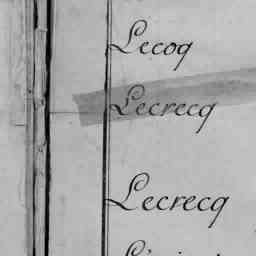 Lecoq
Lecrecq
Lecrecq